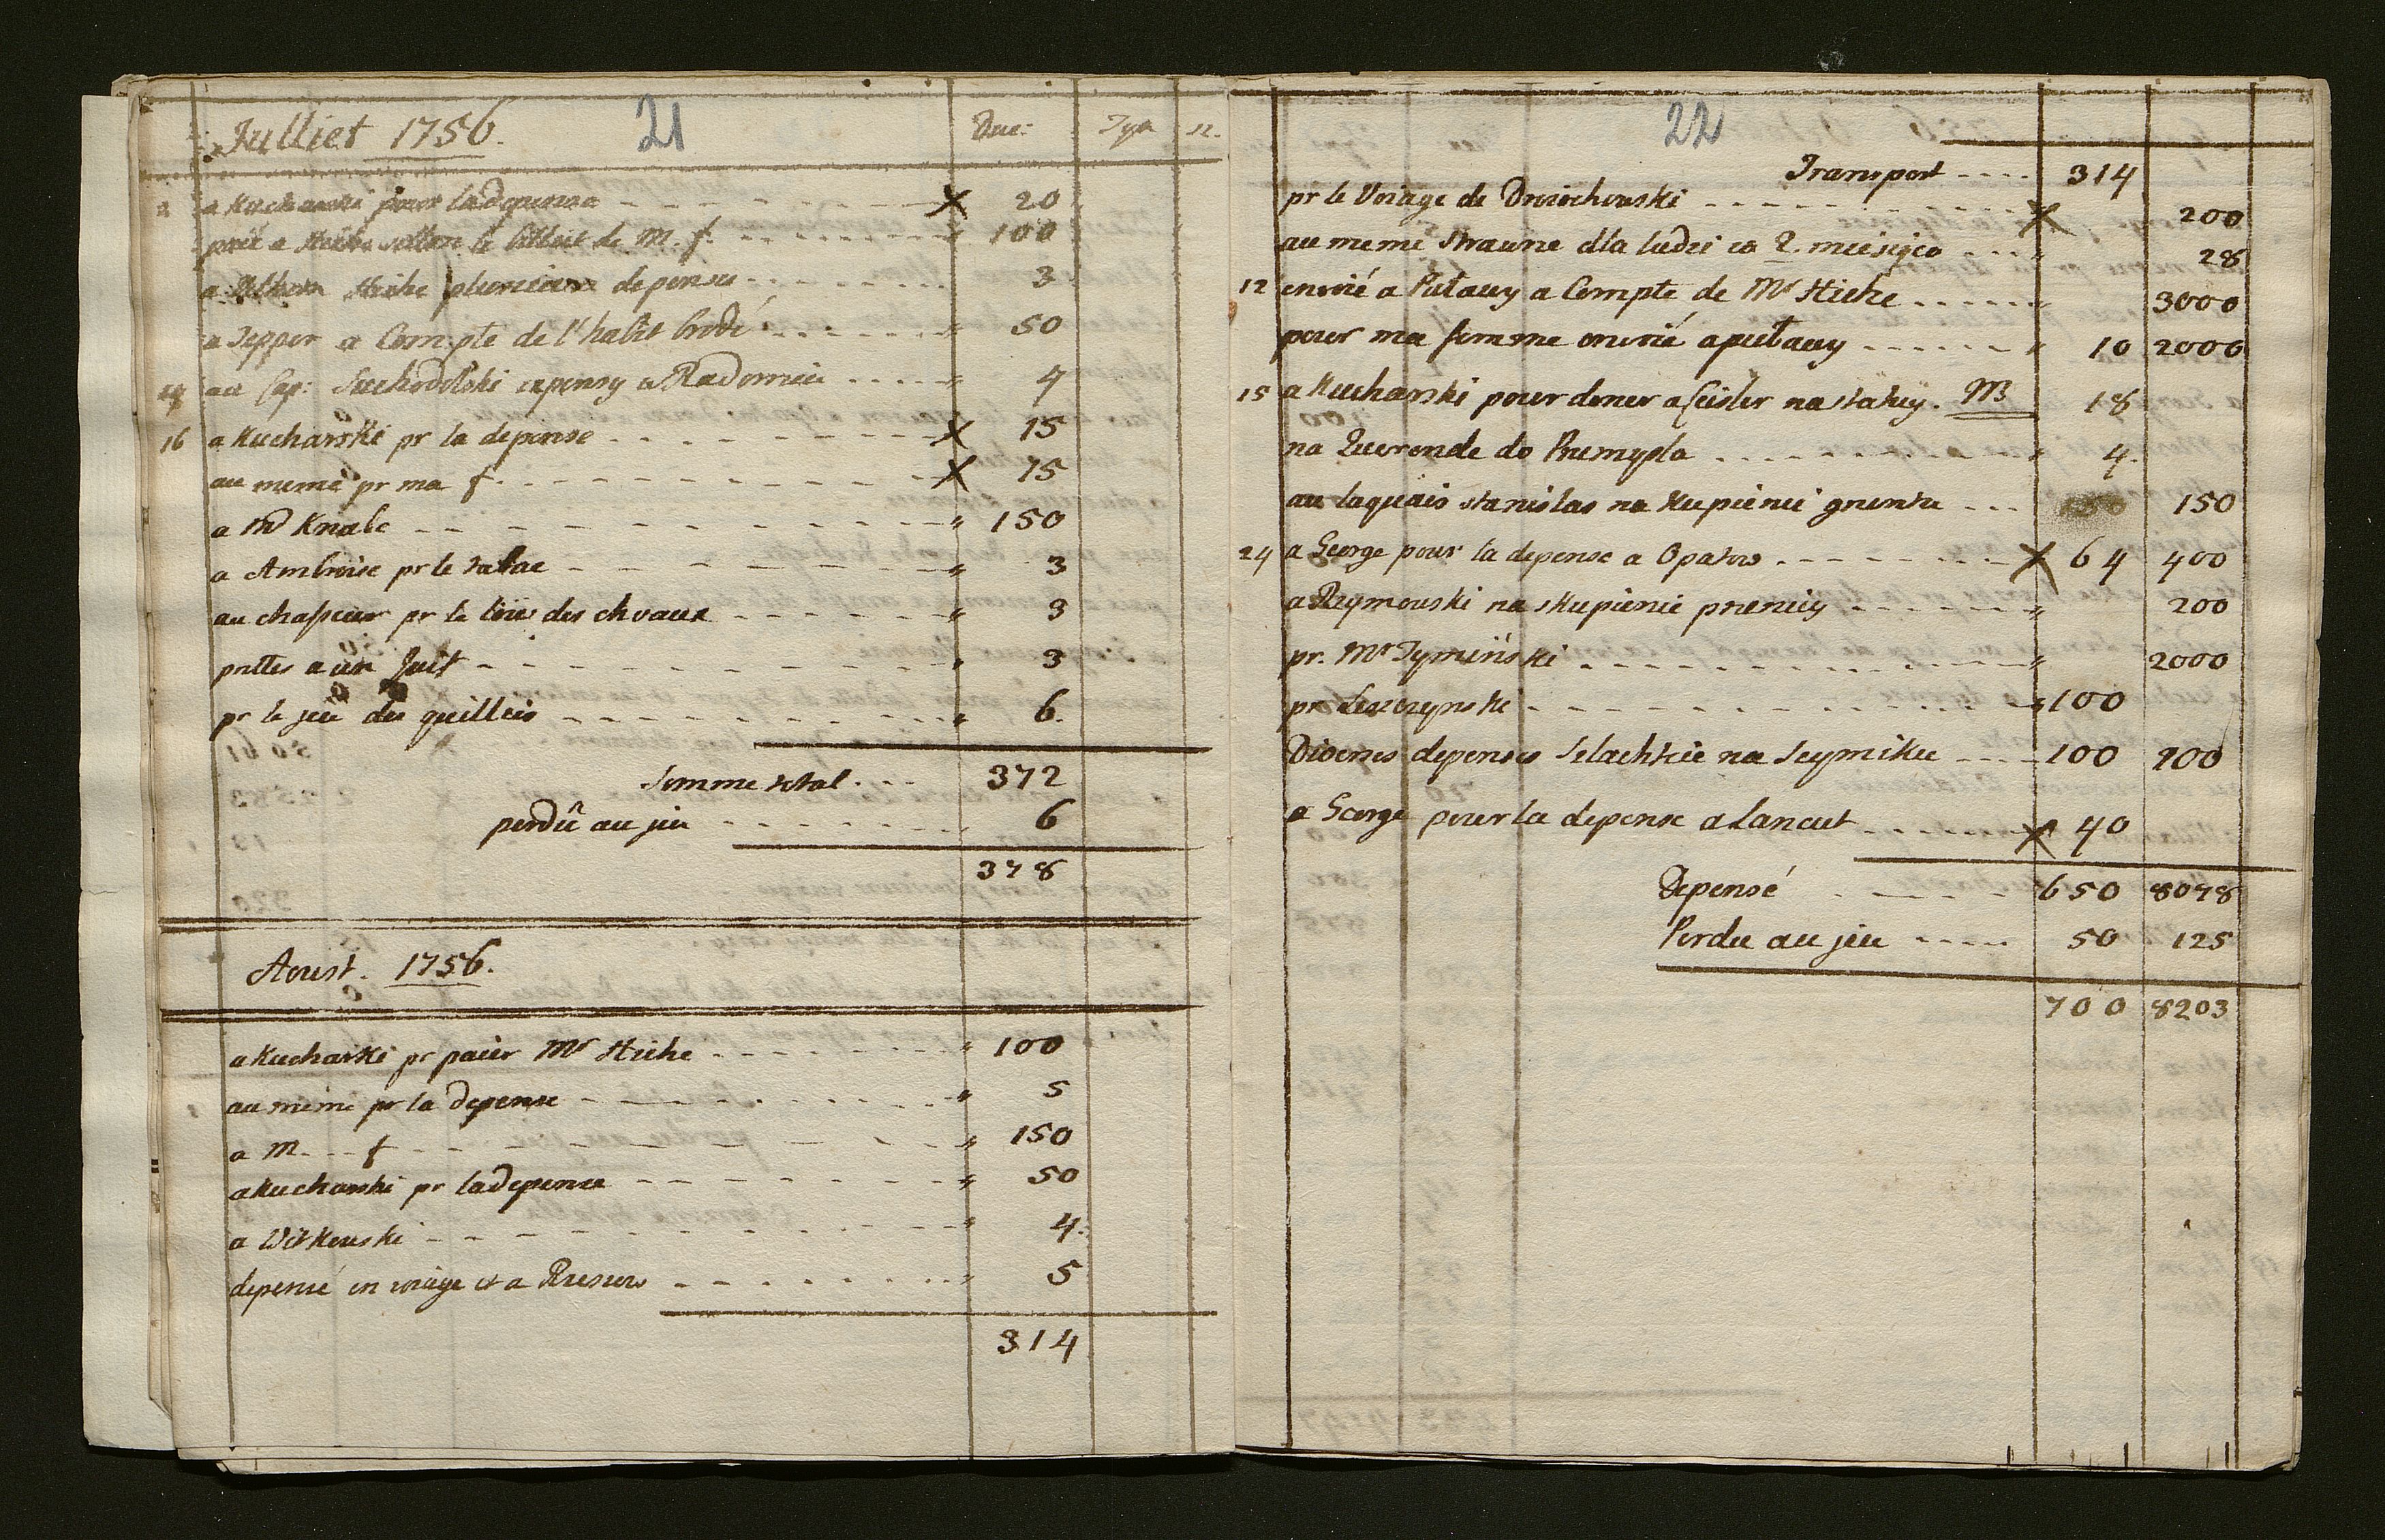 Julliet 1756. 21 Duc: Tyn
2 a Kucharski pour la depense 20
paié a Hiche sellon le billiet de M. f. 100
a Hiche plusieurs depenses 3
a Tepper a Compte de l'habit brodé 50
au Cap: Suchodolski a Radomiu 7
16 a Kucharski pr la depense 15
au meme pr ma f. 15
a Md Knabe 150
a Ambroise pr le tabac 3
au chasseur pr le des chvaux 3
prttes a un Juif 3
pr le jeu du quillies 6.
Somme total 372
perdû au jeu 6
378
Aoust. 1756.
a Kucharski pr paier Mr Hiche 100
au meme pr la depense 5
a M---f 150
a Kucharski pr la depense 50
a Witkouski 4.
depensé en voiage et a Rzeszow 5
314
22
Transport 314
pr le Voiage de 200
au meme strawne dla ludzi za 2. miesiąca 28
12 envoié a Puławy a Compte de Mr Hiche 3000
pour ma femme envoié a puławy 10 2000
15 a Kucharski pour doner a na stakiy. M 18
na Kwerende do Przemysla 4.
au laquais stanislas na Kupienie gruntu 150
24 a George pour la depense a Opatow 64 400
a Rzymouski na skupienie 200
pr. Mr Tyminski 2000
pr Leszczynski 100
Diverses depenses Szlachkie na Seymiku 100 100
a George pour la depense a Lancut 40
Depensé 650 8078
Perdu au jeu 50 125
700 8203